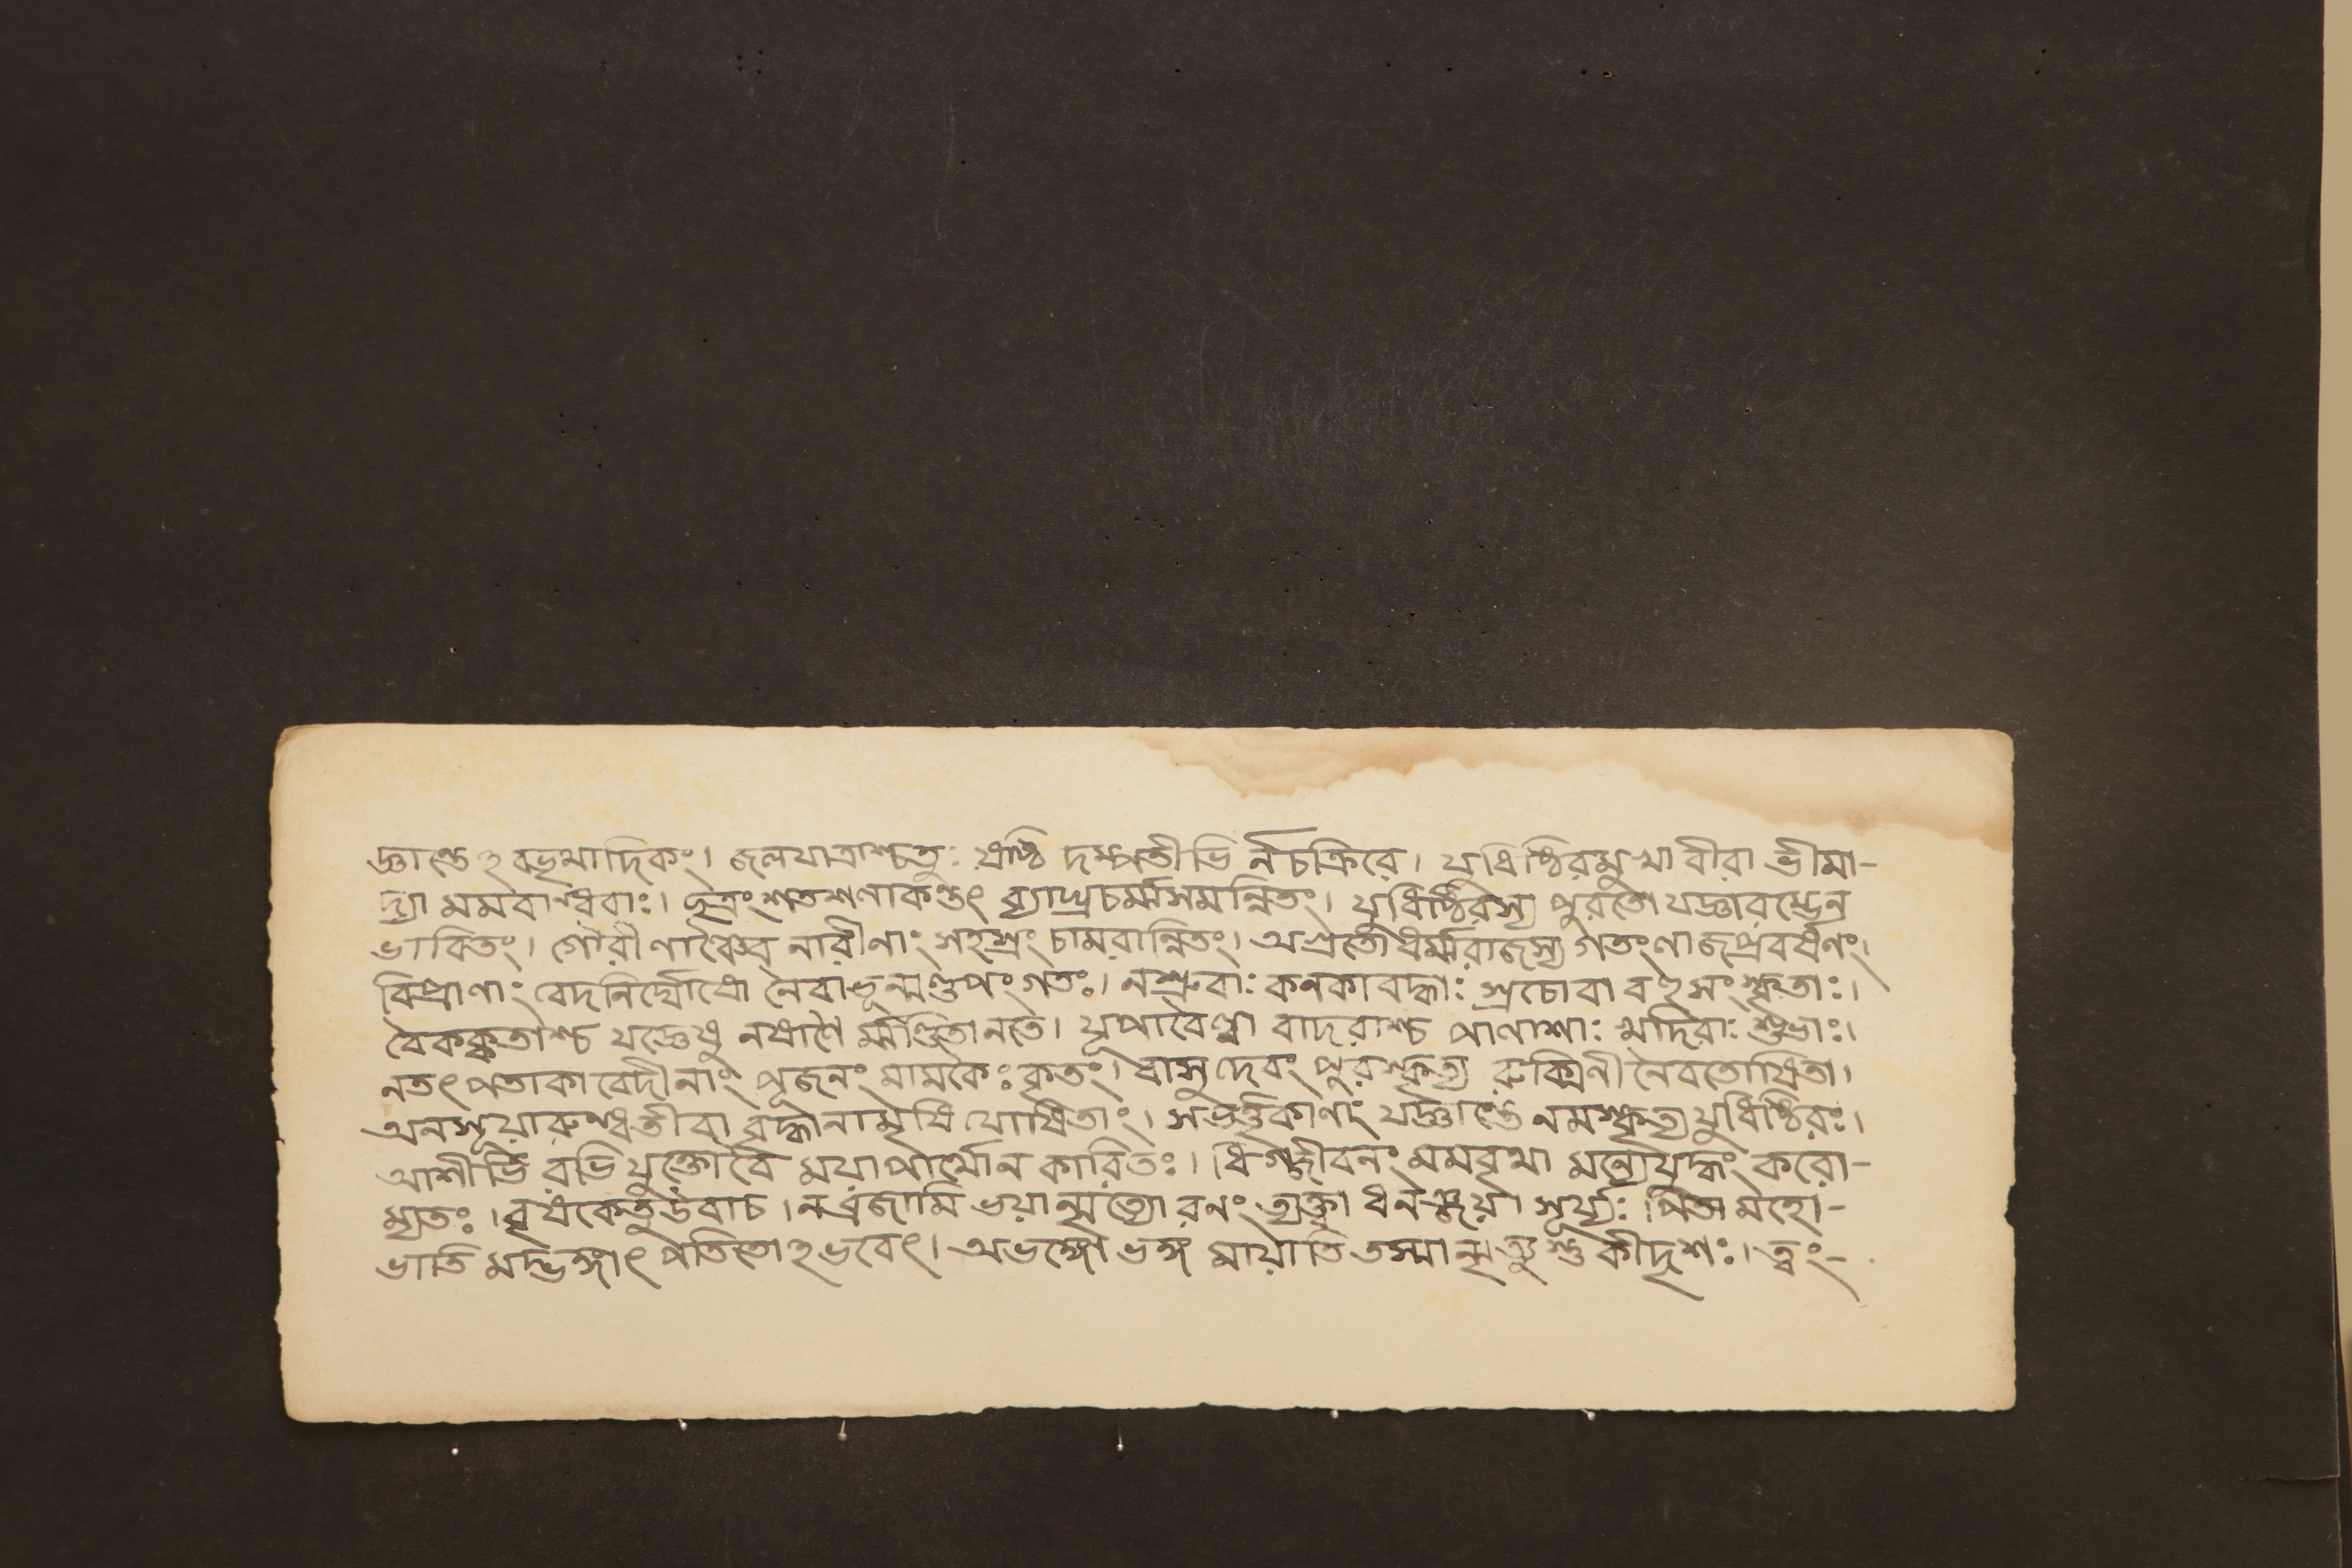 জ্ঞান্তেঽবভৃথাদিকং। জলযাত্রাশ্চতুঃ ষষ্ঠি দম্পতীভি র্নচক্রিরে। যুধিষ্ঠিরমুখা বীরা ভীমা-
দ্যা মমবান্ধবাঃ। ছত্রং শতশলাকন্তৎ ব্যাঘ্রচর্ম্মসমন্নিতং। যুধিষ্ঠিরস্য পুরতো যজ্ঞারম্ভেন
ভাবিতং। গৌরীণাঞ্চৈব নারীণাং সহস্রং চামরান্নিতং। অগ্রতো ধর্ম্মরাজস্য গতংলাজপ্রবর্ষণং।
বিপ্রাণাং বেদনির্ঘোষো নৈবাভূন্মণ্ডপং গতঃ। নশ্রুবাঃ কনকাবদ্ধাঃ স্রচোবা বহু সংস্কৃতাঃ।
বৈকঙ্কতাশ্চ যজ্ঞেষু নষালৈ র্ম্মণ্ডিতানতে। যূপাবৈল্বা বাদরাশ্চ পালাশাঃ খাদিরাঃ শুভাঃ।
নতৎ পতাকা বেদীনাং পূজনং মামকৈঃ কৃতং। বাসুদেবং পুরস্কৃত্য রুক্মিনী নৈবতোষিতা।
অনসূয়ারুন্ধতীবা বৃদ্ধানামৃষি যোষিতাং। সভর্তৃকাণাং যজ্ঞান্তে নমস্কৃত্য যুধিষ্ঠিরঃ।
আশীর্ভি রভিযুক্তোবৈ ময়াপার্থোন কারিতঃ। ধিগজীবনং মমবৃথা মন্যেযুদ্ধং করো-
ম্যতঃ। বৃষকেতুর্উবাচ। নব্রজামি ভয়ান্মৃত্যো রনং ত্যক্ত্বা ধনঞ্জয়। সূর্য্যঃ পিতামহো-
ভাতি মদ্ভঙ্গাৎ পতিতোঽভবেৎ। অভঙ্গো ভঙ্গ মায়াতি তস্মান্মৃত্যুস্তু কীদৃশঃ। ত্বং-